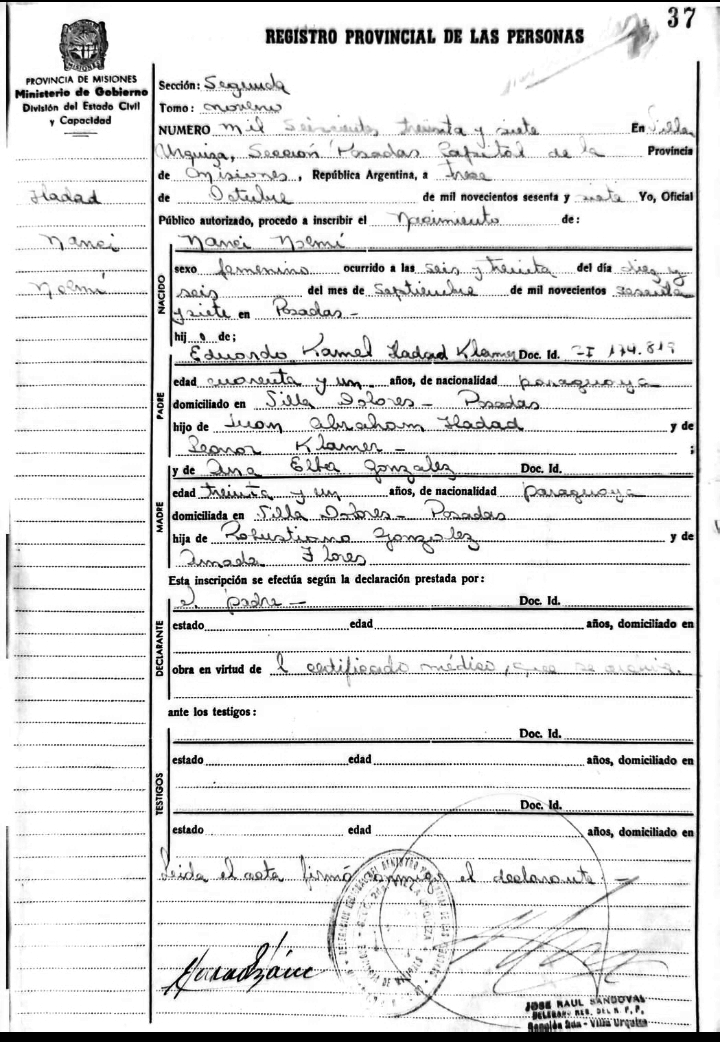 37
REGISTRO PROVINCIAL DE LAS PERSONAS
PROVINCIA DE MISIONES
Ministerio de Gobierno
División del Estado Civil
y Capacidad
Hadad
Nanci
Noemí
Sección: Segunda
Tomo: noveno
NUMERO mil seiscientos treinta y siete En Villa
Urquiza, Sección Posadas Capital de la Provincia
de Misiones, República Argentina, a trece
de Octubre de mil novecientos sesenta y siete Yo, Oficial
Público autorizado, procedo a inscribir el Nacimiento de:
NACIDO
Nanci Noemí
sexo femenino ocurrido a las seis y treinta del día diez y
seis del mes de Septiembre de mil novecientos sesenta
y siete en Posadas -
hij a de;
PADRE
Eduardo Kamel Hadad Klamer Doc. Id. CI 174.819
edad cuarenta y un años, de nacionalidad paraguaya
domiciliado en Villa Dolores - Posadas
hijo de Juan Abraham Hadad y de
Leonor Klamer - ;
MADRE
y de Ana Elba Gonzalez Doc. Id.
edad treinta y un años, de nacionalidad paraguaya
domiciliada en Villa Dolores - Posadas
hija de Robustiano Gonzalez y de
Amada Flores
Esta inscripción se efectúa según la declaración prestada por:
DECLARANTE
el padre - Doc. Id.
estado edad años, domiciliado en
obra en virtud de l certificado médico, que se archiva.
ante los testigos:
TESTIGOS
Doc. Id.
estado edad años, domiciliado en
Doc. Id.
estado edad años, domiciliado en
Leida el acta firmó conmigo el declarante -
JOSE RAUL SANDOVAL
Sección 2da - Villa Urquiza